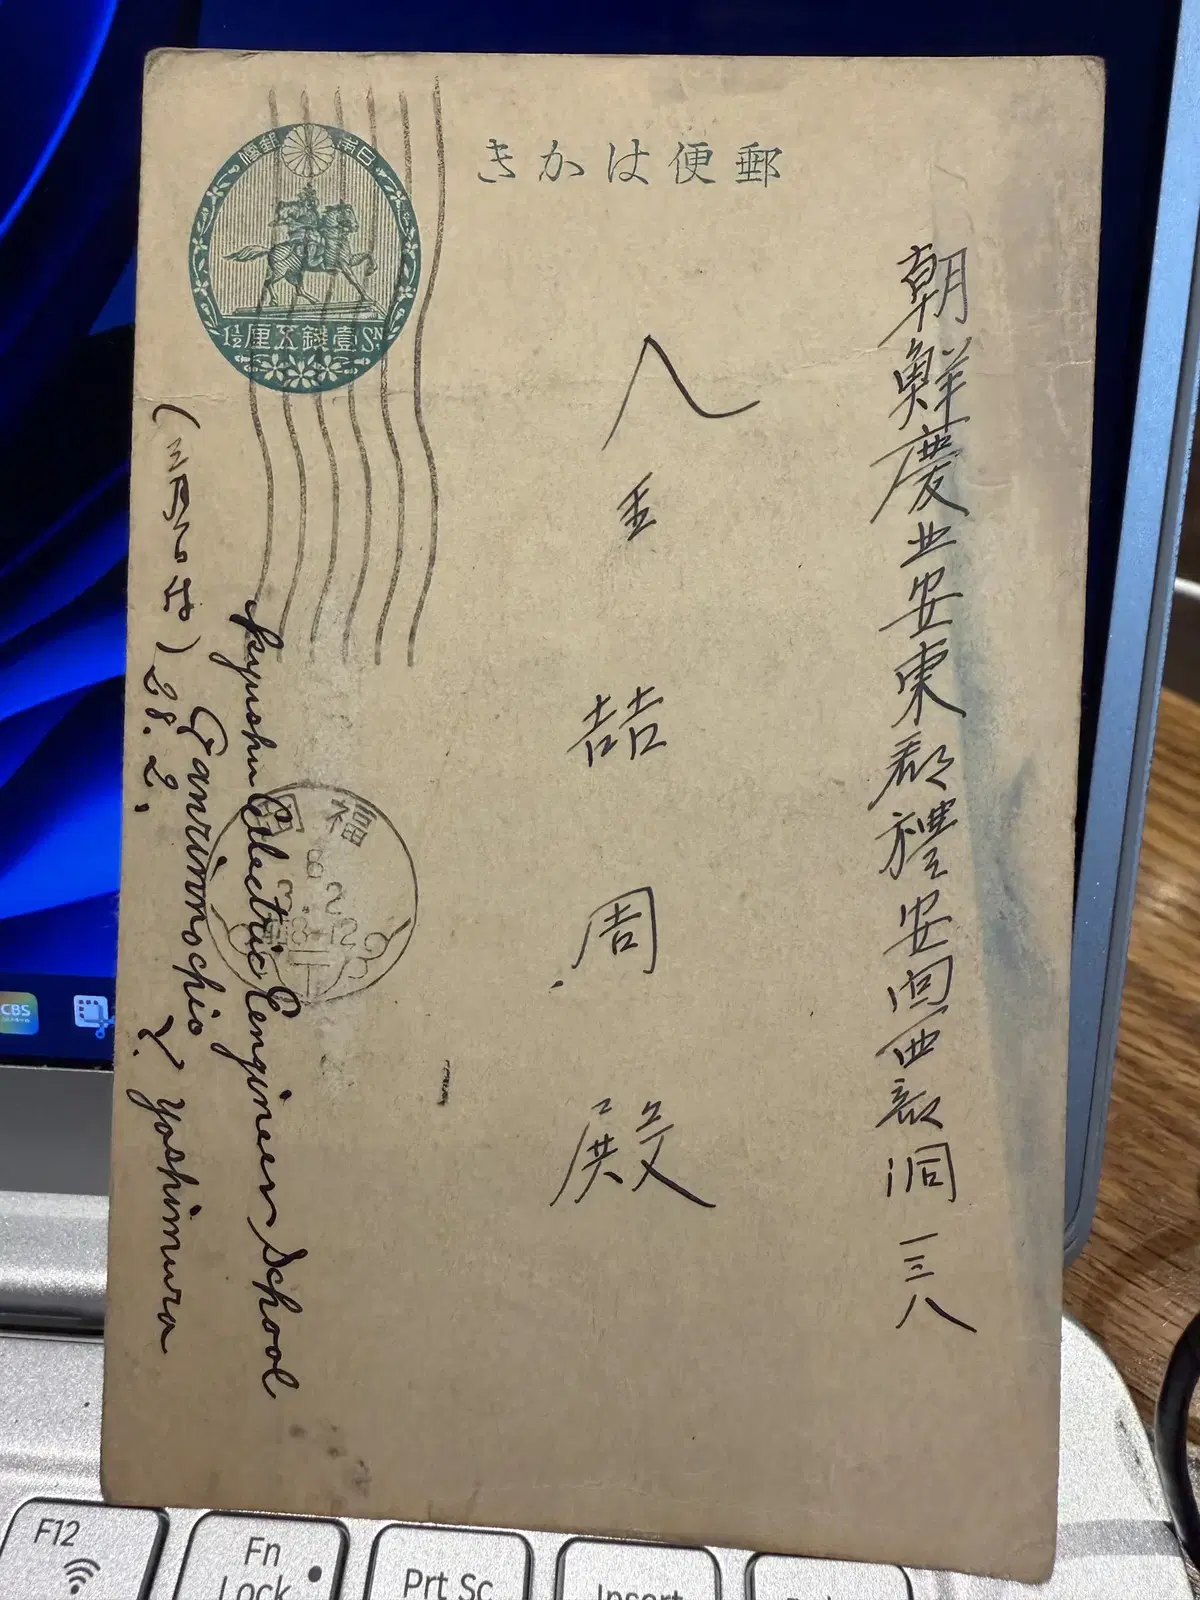 郵便はかき
日本郵便
壹錢五厘
1½ Sn
朝鮮慶北安東郡禮安面西部洞一三八
金喆周殿
福岡
8. 2. 28
后8-12
Kyushu Electric Eengineer School
Y. Yoshimura
28. 2.
F12
Fn
Lock
Prt Sc
Insert
CBS